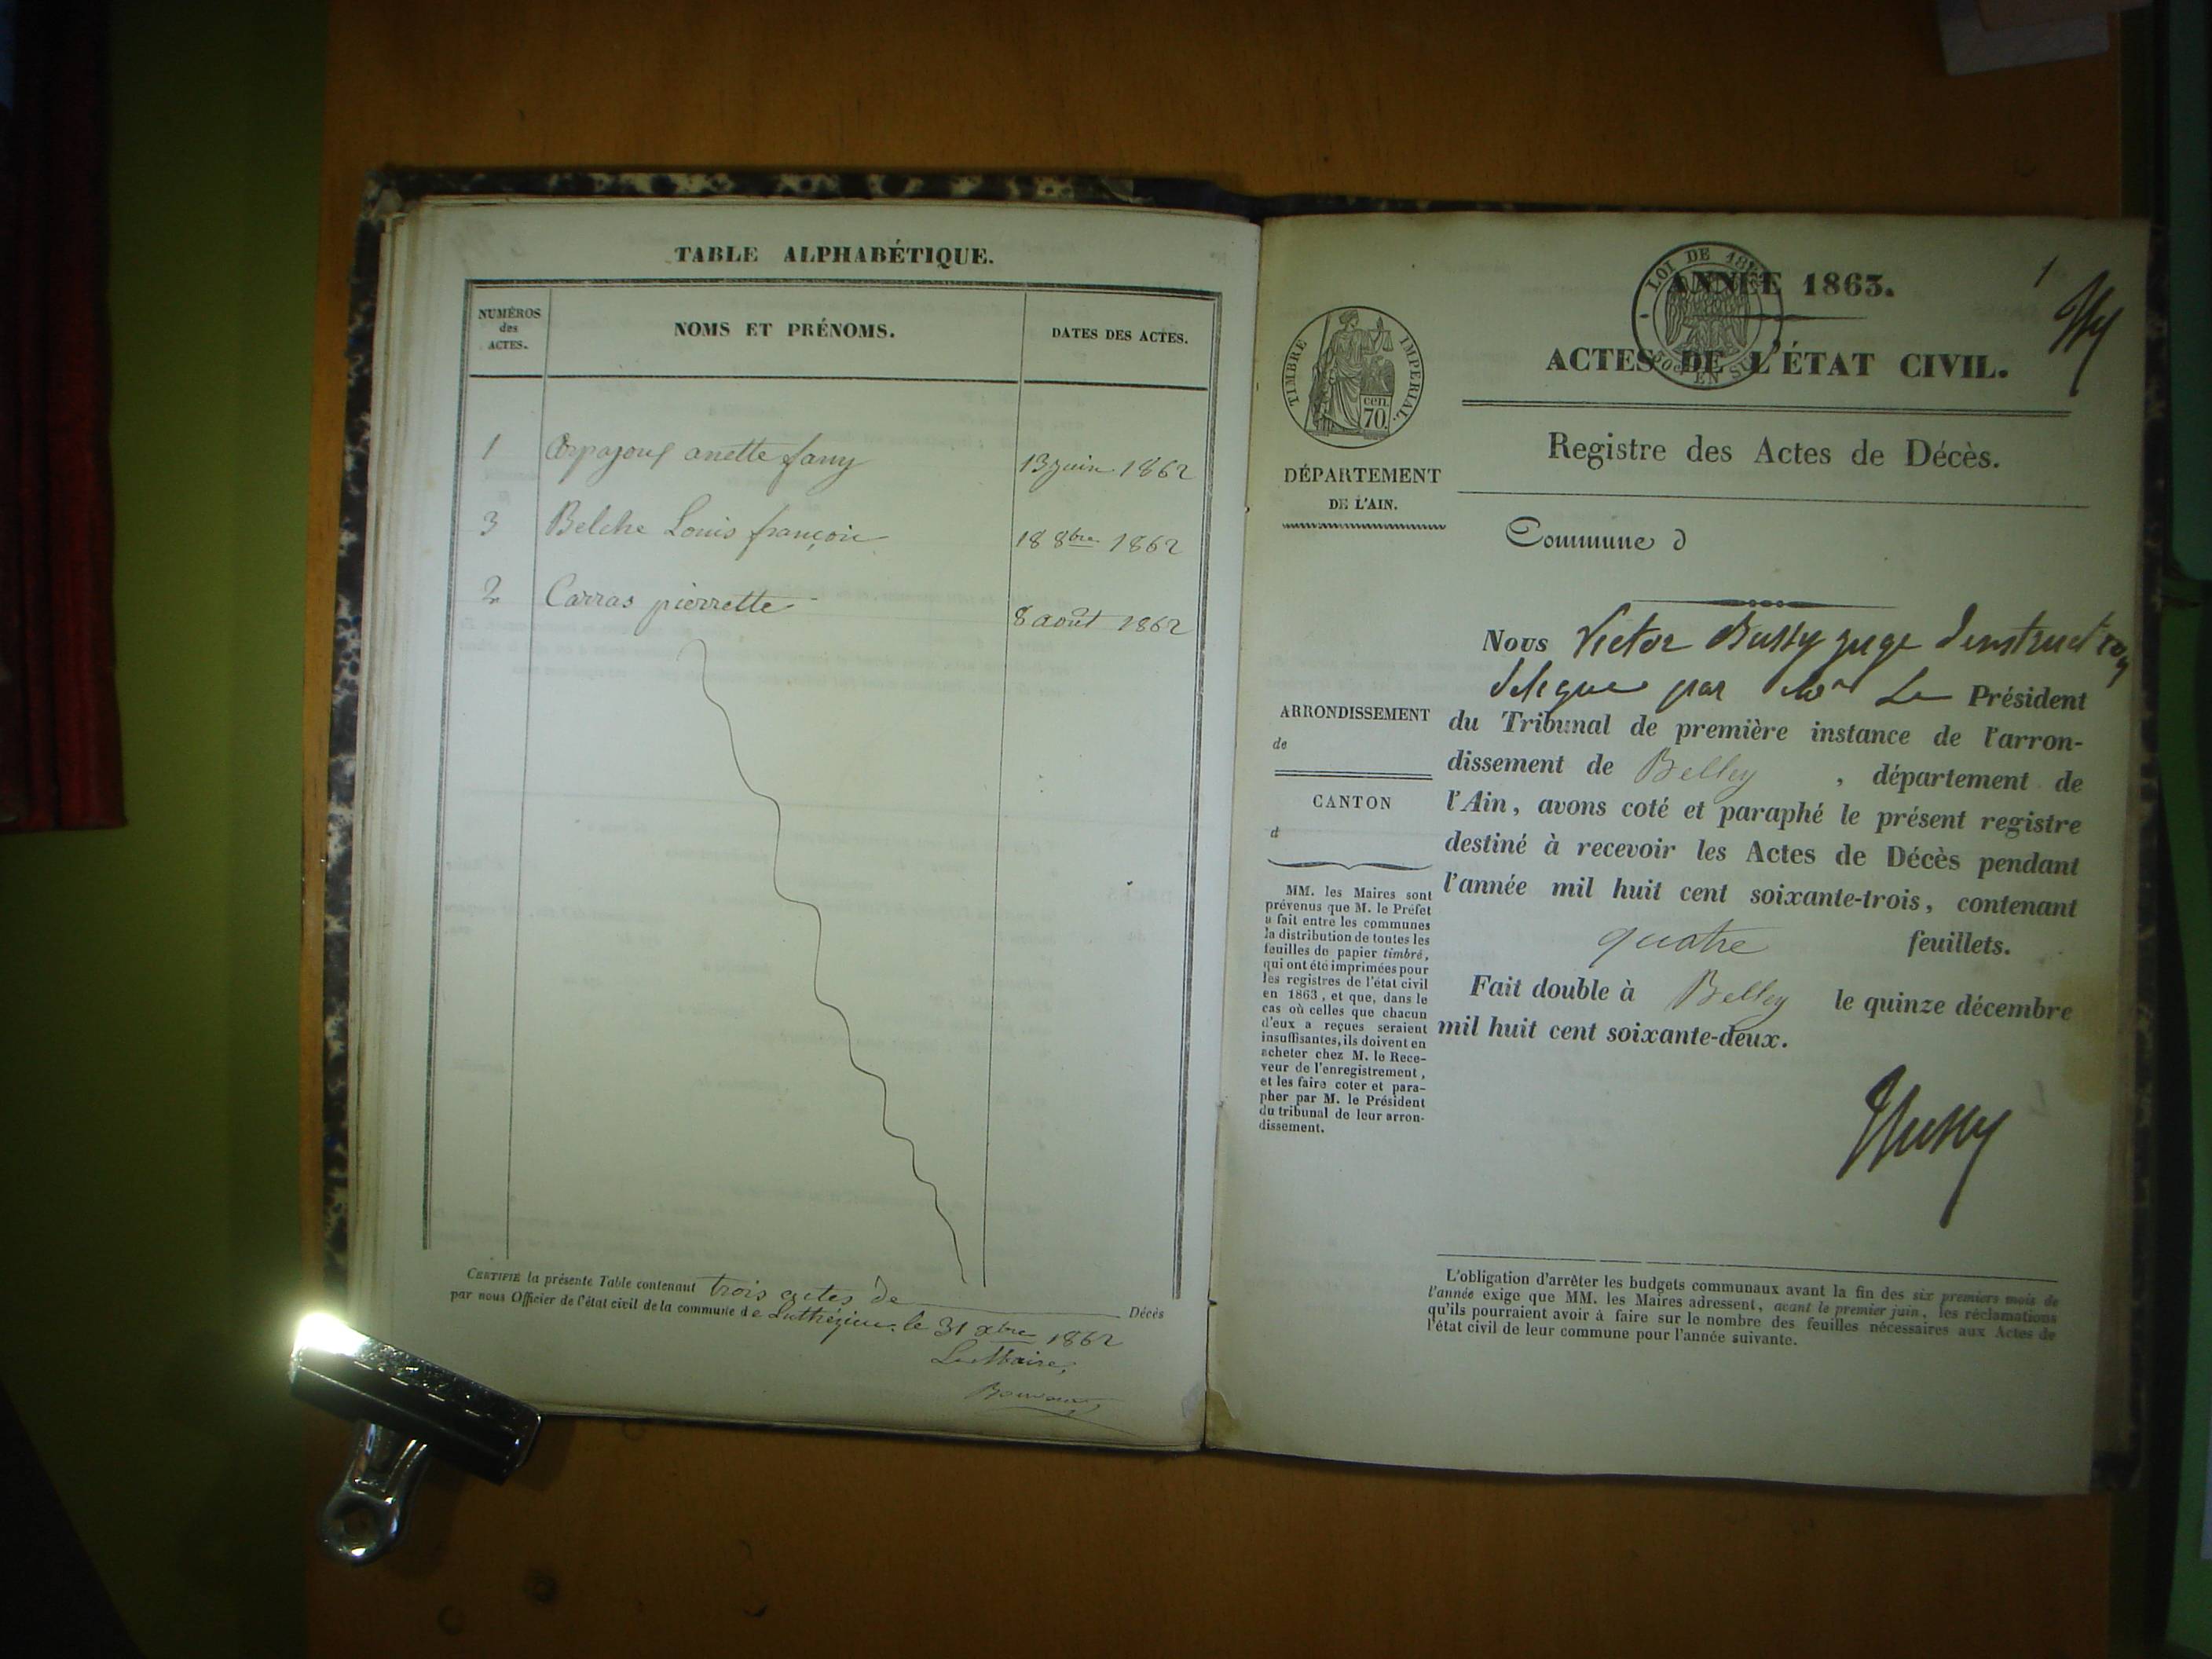 TABLE ALPHABÉTIQUE.
NUMÉROS
des
ACTES.
NOMS ET PRÉNOMS.
DATES DES ACTES.
1 anette fany 13 juin 1862
3 Belche Louis françois 18 8bre 1862
2 Carras pierrette 8 août 1862
CERTIFIÉ la présente Table contenant trois actes de Décès
par nous Officier de l'état civil de la commune de Luthézieu, le 31 xbre 1862
Le Maire,
1
LOI DE
EN SUS
ANNÉE 1863.
ACTES DE L'ÉTAT CIVIL.
Registre des Actes de Décès.
Commune d
TIMBRE IMPERIAL.
cen.
70.
DÉPARTEMENT
DE L'AIN.
ARRONDISSEMENT
de
CANTON
d
MM. les Maires sont
prévenus que M. le Préfet
a fait entre les communes
la distribution de toutes les
feuilles de papier timbré,
qui ont été imprimées pour
les registres de l'état civil
en 1863, et que, dans le
cas où celles que chacun
d'eux a reçues seraient
insuffisantes, ils doivent en
acheter chez M. le Rece-
veur de l'enregistrement,
et les faire coter et para-
pher par M. le Président
du tribunal de leur arron-
dissement.
Nous Victor Bussy juge d'instruction
délégué par Mr Le Président
du Tribunal de première instance de l'arron-
dissement de Belley , département de
l'Ain, avons coté et paraphé le présent registre
destiné à recevoir les Actes de Décès pendant
l'année mil huit cent soixante-trois, contenant
quatre feuillets.
Fait double à Belley le quinze décembre
mil huit cent soixante-deux.
Bussy
L'obligation d'arrêter les budgets communaux avant la fin des six premiers mois de
l'année exige que MM. les Maires adressent, avant le premier juin, les réclamations
qu'ils pourraient avoir à faire sur le nombre des feuilles nécessaires aux Actes de
l'état civil de leur commune pour l'année suivante.